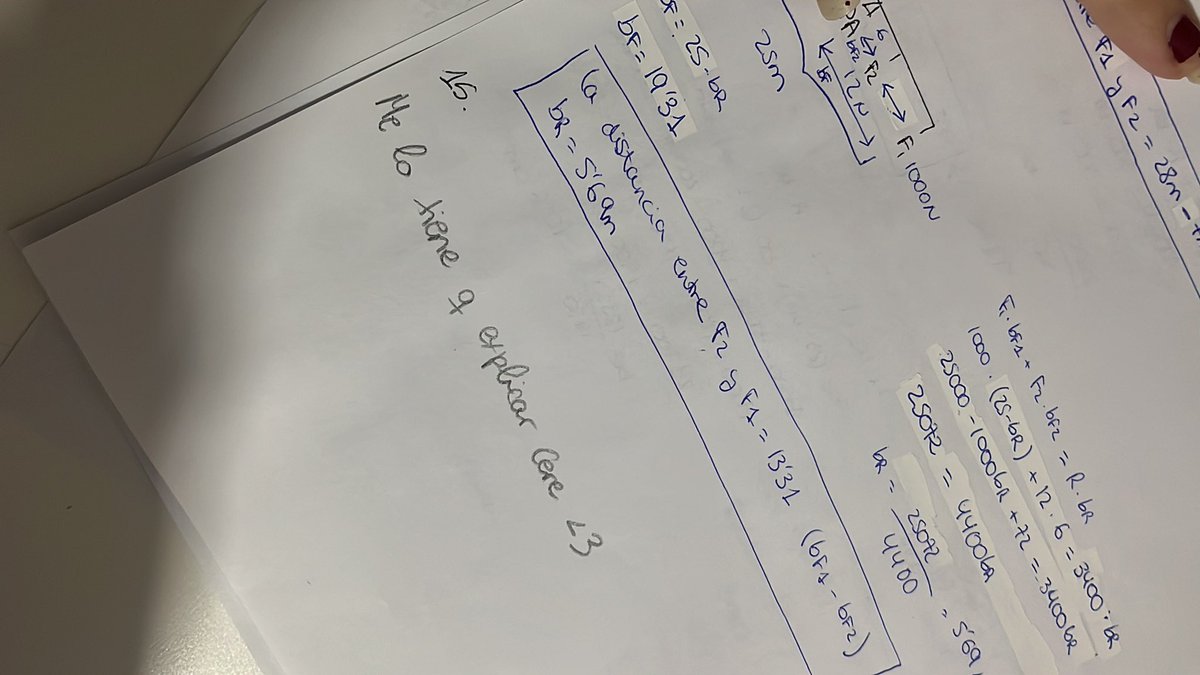 F1 y F2 = 28m -
6
F2 F1 1000N
bF2 12N
bF
25m
F1·bF1 + F2·bF2 = R·bR
1000·(25-bR) + 12·6 = 3400·bR
25000 - 1000bR + 72 = 3400bR
25072 = 4400bR
bR = 25072 / 4400 = 5'69
= 25-bR
bF = 19'31
la distancia entre F2 y F1 = 13'31 (bF1 - bF2)
bR = 5'69m
15.
Me lo tiene q explicar Cere <3